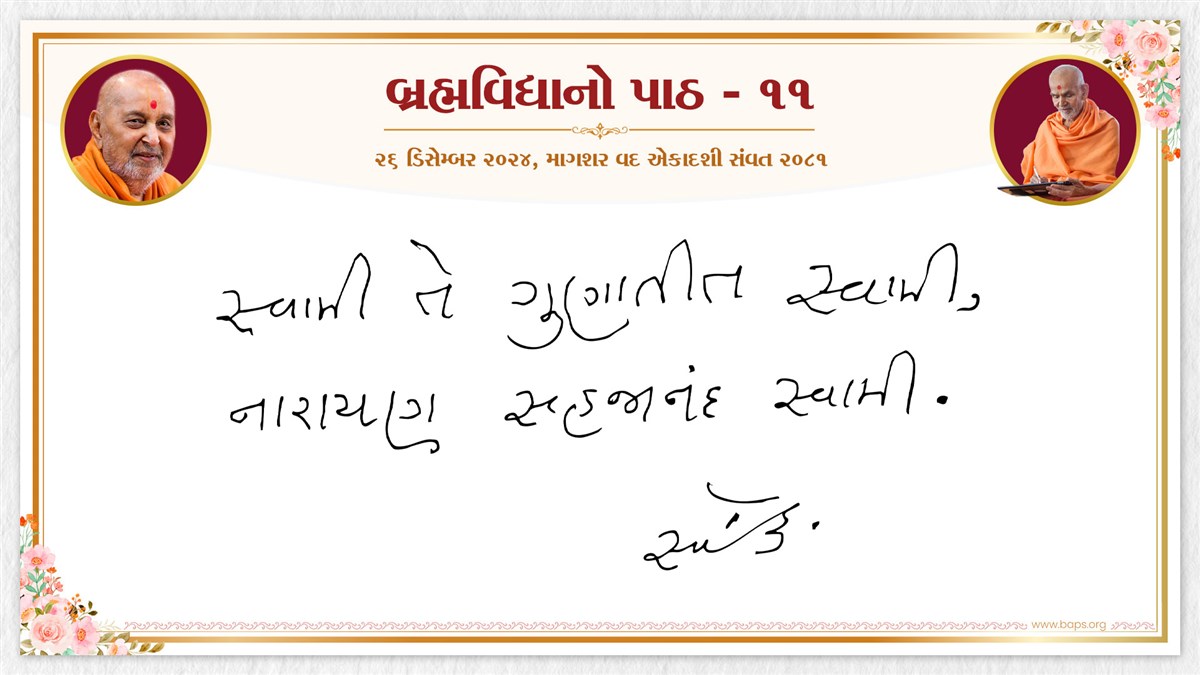 બ્રહ્મવિદ્યાનો પાઠ - ૧૧
૨૬ ડિસેમ્બર ૨૦૨૪, માગશર વદ એકાદશી સંવત ૨૦૮૧
સ્વામી તે ગુણાતીત સ્વામી,
નારાયણ સહજાનંદ સ્વામી.
www.baps.org